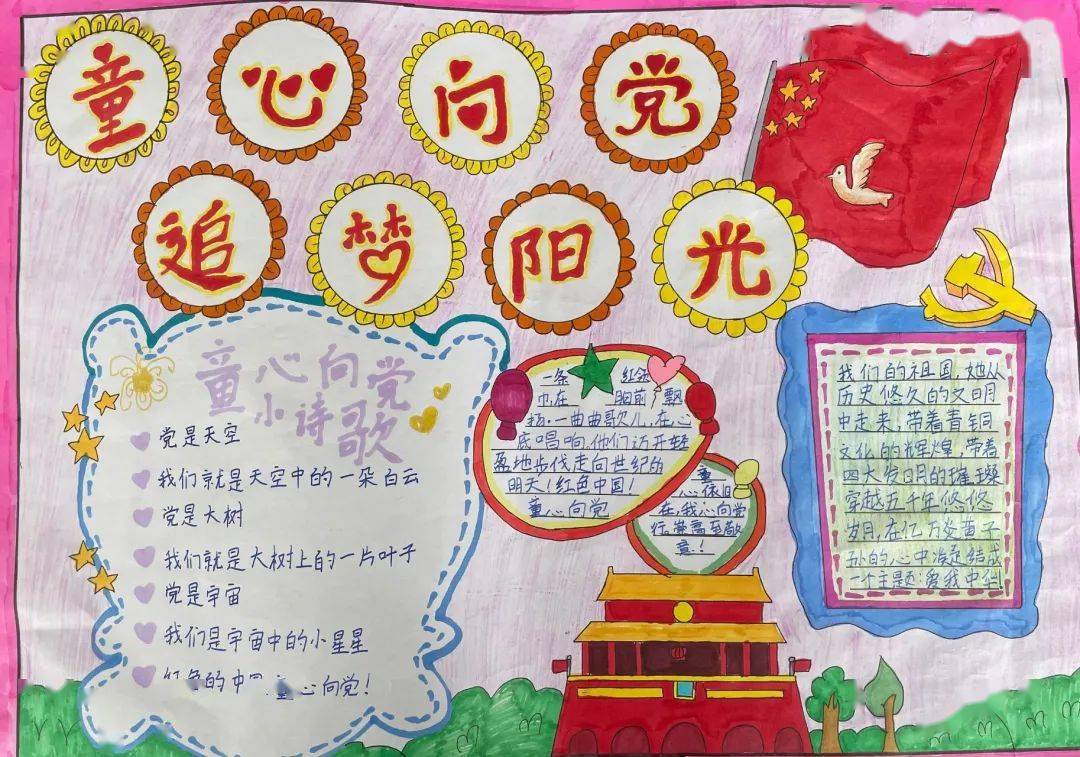 童心向党
追梦阳光
童心向党
小诗歌
党是天空
我们就是天空中的一朵白云
党是大树
我们就是大树上的一片叶子
党是宇宙
我们是宇宙中的小星星
红色的中 童心向党!
一条 红领
巾在 胸前,飘
扬,一曲曲歌儿,在心
底唱响,他们迈开轻
盈地步伐走向世纪的
明天!红色中国!
童心向党
童
心依旧
在,我心向党
标 崇高至敬
意!
我们的祖国,她从
历史悠久的文明
中走来,带着青铜
文化的辉煌,带着
四大发明的璀璨
穿越五千年悠悠
岁月,在亿万炎黄子
孙的心中凝结成
一个主题:爱我中华